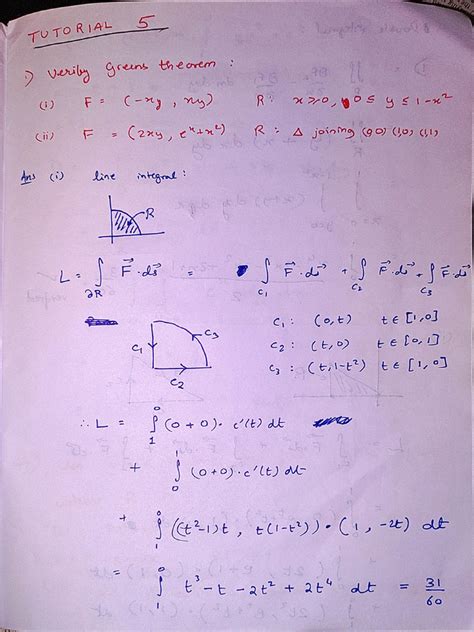 TUTORIAL 5
1) Verify Greens theorem :
(i) F = (-xy , xy) R : x ≥ 0, 0 ≤ y ≤ 1-x²
(ii) F = (2xy, eˣ+x²) R : Δ joining (0,0) (1,0) (1,1)
Ans (i) line integral :
R
L = ∫∂R F⃗·ds⃗ = ∫c₁ F⃗·ds⃗ + ∫c₂ F⃗·ds⃗ + ∫c₃ F⃗·ds⃗
c₁ c₂ c₃
c₁ : (0,t) t ∈ [1,0]
c₂ : (t,0) t ∈ [0,1]
c₃ : (t,1-t²) t ∈ [1,0]
∴ L = ∫₁⁰ (0+0)· c'(t) dt
+ ∫₀¹ (0+0)· c'(t) dt
+ ∫₁⁰ ((t²-1)t , t(1-t²))·(1, -2t) dt
= ∫₁⁰ t³ - t - 2t² + 2t⁴ dt = 31/60